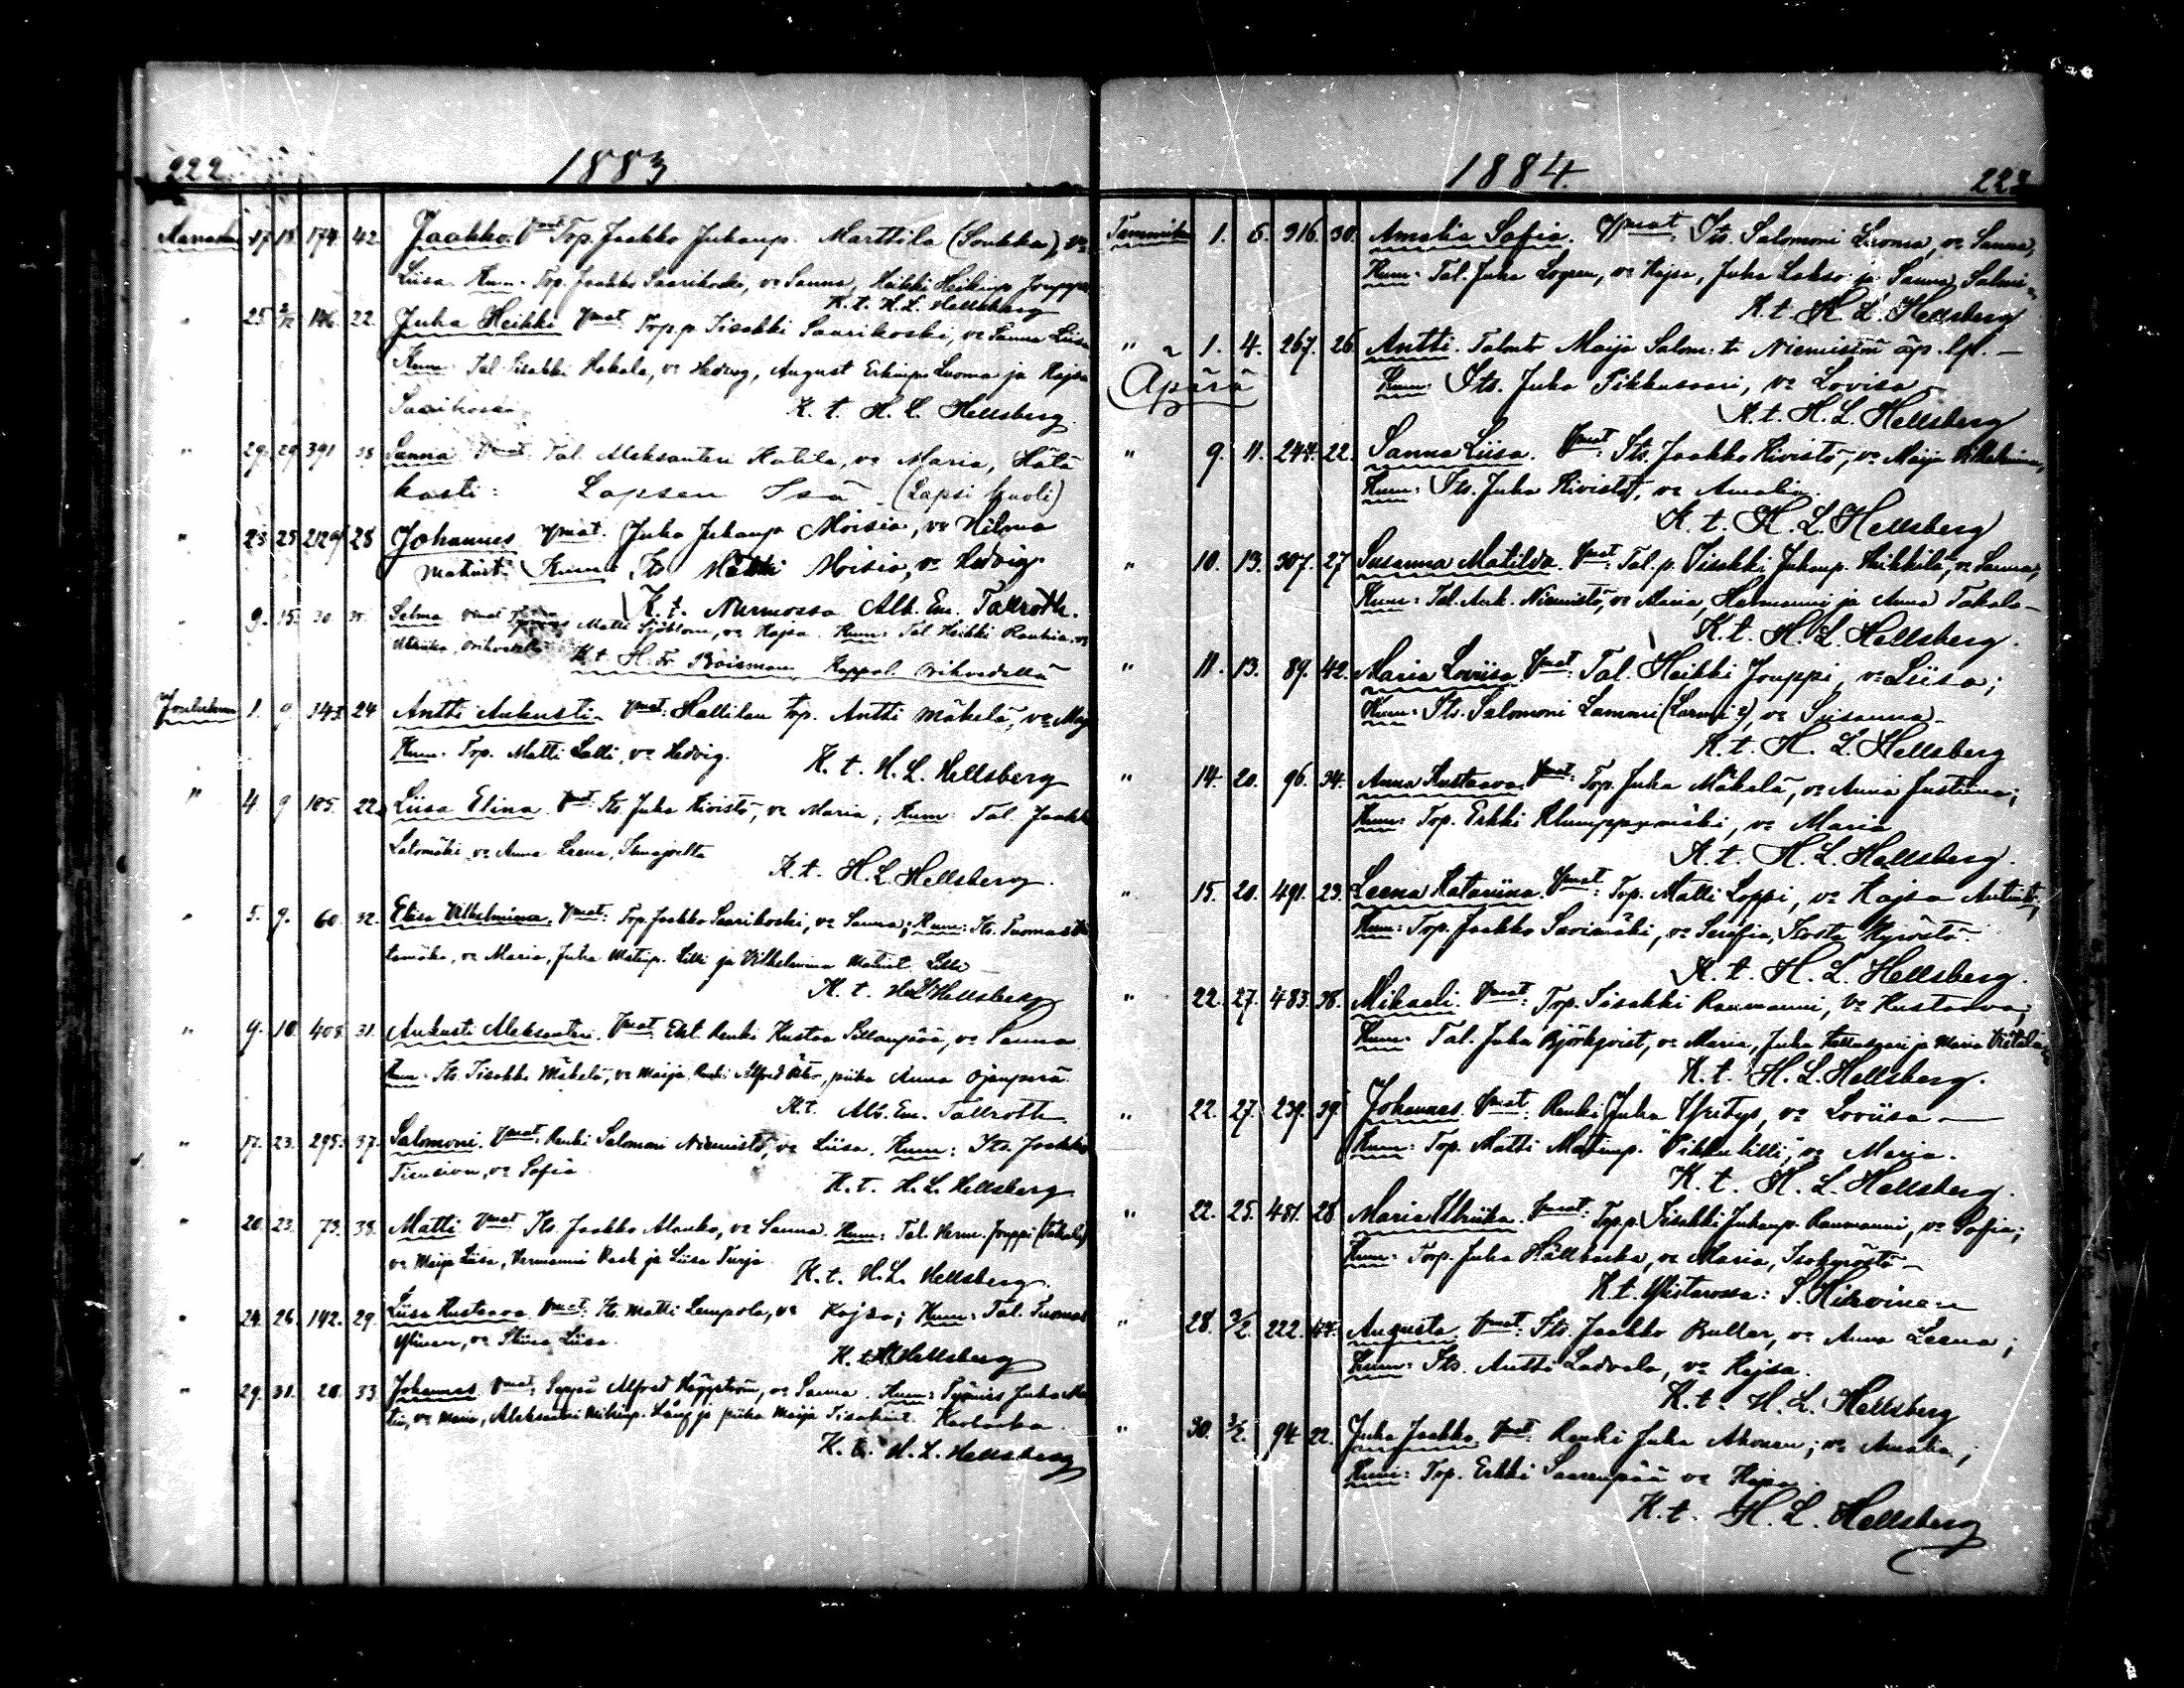 222
1883
Marrask. 17. 18. 174. 42. Jaakko. Vmat Torp. Jaakko Juhanp. Marttila (Soukka), vo
Liisa. Kum. Torp. Jaakko Saarikoski, vo Sanna, Heikki Heikinp. Jouppi
K. t. H. L. Hellsberg
" 25. 2/12 146. 22. Juha Heikki Vmat Torp.p. Iisakki Saarikoski, vo Sanna Liisa
Kum. Tal. Iisakki Hakala, vo Hedvig, August Erkinp. Luoma ja Kajsa
Saarikoski.
K. t. H. L. Hellsberg
" 29. 29 391 28 Sanna Vmat Tal. Aleksanteri Katila, vo Maria, Hätä
kasti: Lapsen Isä. (Lapsi kuoli)
" 23 25 28 Johannes Vmat. Juha Juhanp. Moisio, vo Hilma
Matint. Kum: Its. Matti Moisio, vo Hedvig
K. t. Nurmossa Alb. Em. Tallroth.
" 9. 15. 30 35. Selma Vmat Matti Sjöblom, vo Kajsa. Kum: Tal. Heikki Rauhia, vo
Ulriika, Orihvedellä K. t. H. Fr. Boisman, Kappal. Orihvedellä
Joulukuu 1. 9 143. 24 Antti Aukusti. Vmat: Hallilan Torp. Antti Mäkelä, vo Maj
Kum. Torp. Matti Lalli, vo Hedvig.
K. t. H. L. Hellsberg
" 4. 9 105. 22. Liisa Elina. Vmat: Its. Juha Kivistö, vo Maria, Kum: Tal. Jaakko
Latomäki, vo Anna Leena, Ilmajoelta
K. t. H. L. Hellsberg.
" 5. 9. 60. 32. Elisa Vilhelmina. Vmat: Torp. Jaakko Saarikoski, vo Sanna; Kum: Its. Tuomas
tamäki, vo Maria, Juha Matinp. Lilli ja Vilhelmina Matint. Lilli
K. t. H. L. Hellsberg
" 9. 10. 408. 31. Aukusti Aleksanteri. Vmat: Ent. Renki Kustaa Sillanpää, vo Sanna
Kum. Its. Iisakki Mäkelä, vo Maija, Renki Alfred, piika Anna Ojanperä
K. t. Alb. Em. Tallroth
" 17. 23. 295. 37. Salomoni. Vmat: Renki Salomoni Niemistö, vo Liisa, Kum: Its. Jaakko
vo Sofia
K. t. H. L. Hellsberg
" 20. 23. 73. 38. Matti Vmat: Its. Jaakko Alanko, vo Sanna. Kum: Tal. Herm. Jouppi (Takala)
vo Maija Liisa, Hermanni Rask ja Liisa Turja
K. t. H. L. Hellsberg.
" 24. 26. 142. 29. Liisa Kustaava Vmat: Its. Matti Lempola, vo Kajsa; Kum: Tal. Tuomas
vo Liisa.
K. t. H. Hellsberg
" 29. 31. 20. 33 Johannes Vmat: Seppä Alfred Häggström, vo Sanna. Kum: Työmies Juha
vo Maria, Aleksanteri Mikinp. Lång ja piika Maija Iisakint. Karhaka
K. t. H. L. Hellsberg
1884.
223
Tammikuu 1. 6. 316. 30. Amalia Sofia. Vmat. Its. Salomoni Luoma, vo Sanna,
Kum: Tal. Juha Logren, vo Kajsa, Juha Lakso ja Sanna Salmi
K. t. H. L. Hellsberg
" 1. 4. 267. 26 Antti. Talont. Maija Salom: tr Niemistön äp. lps. —
Äpärä
Kum: Its. Juha Pikkusaari, vo Lovisa —
K. t. H. L. Hellsberg
" 9. 11. 244. 22. Sanna Liisa. Vmat: Its. Jaakko Kivistö, vo Maija Vilhelmina,
Kum: Its. Juha Kivistö, vo Amalia.
K. t. H. L. Hellsberg
" 10. 13. 307. 27 Susanna Matilda. Vmat: Tal. p. Iisakki Juhanp. Heikkilä, vo Sanna,
Kum: Tal. Ant. Niemistö, vo Maria, Hermanni ja Anna Takala —
K. t. H. L. Hellsberg.
" 11. 13. 89. 42. Maria Loviisa Vmat: Tal. Heikki Jouppi, vo Liisa;
Kum: Its. Salomoni Lammi (Larmi?), vo Susanna —
K. t. H. L. Hellsberg
" 14. 20. 96. 34. Anna Kustaava. Vmat: Torp. Juha Mäkelä, vo Anna Justiina;
Kum: Torp. Erkki Klumppumäki, vo Maria
K. t. H. L. Hellsberg.
" 15. 20. 491. 23. Leena Katariina. Vmat: Torp. Matti Loppi, vo Kajsa Antint.;
Kum: Torp. Jaakko Savimäki, vo Serafia, Isosta Kyröstä.
K. t. H. L. Hellsberg.
" 22. 27. 483. 38. Mikaeli. Vmat: Torp. Iisakki Raumanni, vo Kustaava;
Kum: Tal. Juha Björkqvist, vo Maria, Juha ja Maria
K. t. H. L. Hellsberg.
" 22. 27. 239. 39. Johannes. Vmat: Renki Juha Yrityp, vo Loviisa —
Kum: Torp. Matti Matinp. Pikku Lilli, vo Maria.
K. t. H. L. Hellsberg.
" 22. 25. 481. 28 Maria Ulriika. Vmat: Torp.p. Iisakki Juhanp. Raumanni, vo Sofia;
Kum: Torp. Juha Hällbacka, vo Maria, Isokyröstä —
K. t. Ylistarossa: S. Hirvinen
" 28. 3/2. 222. 44. Augusta. Vmat: Its. Jaakko Buller, vo Anna Leena;
Kum: Its. Antti Ladvala, vo Kajsa.
K. t. H. L. Hellsberg
" 30. 3/2. 94 22. Juha Jaakko. Vmat: Renki Juha Ahonen; vo Amalia;
Kum: Torp. Erkki Saarenpää vo Kajsa.
K. t. H. L. Hellsberg